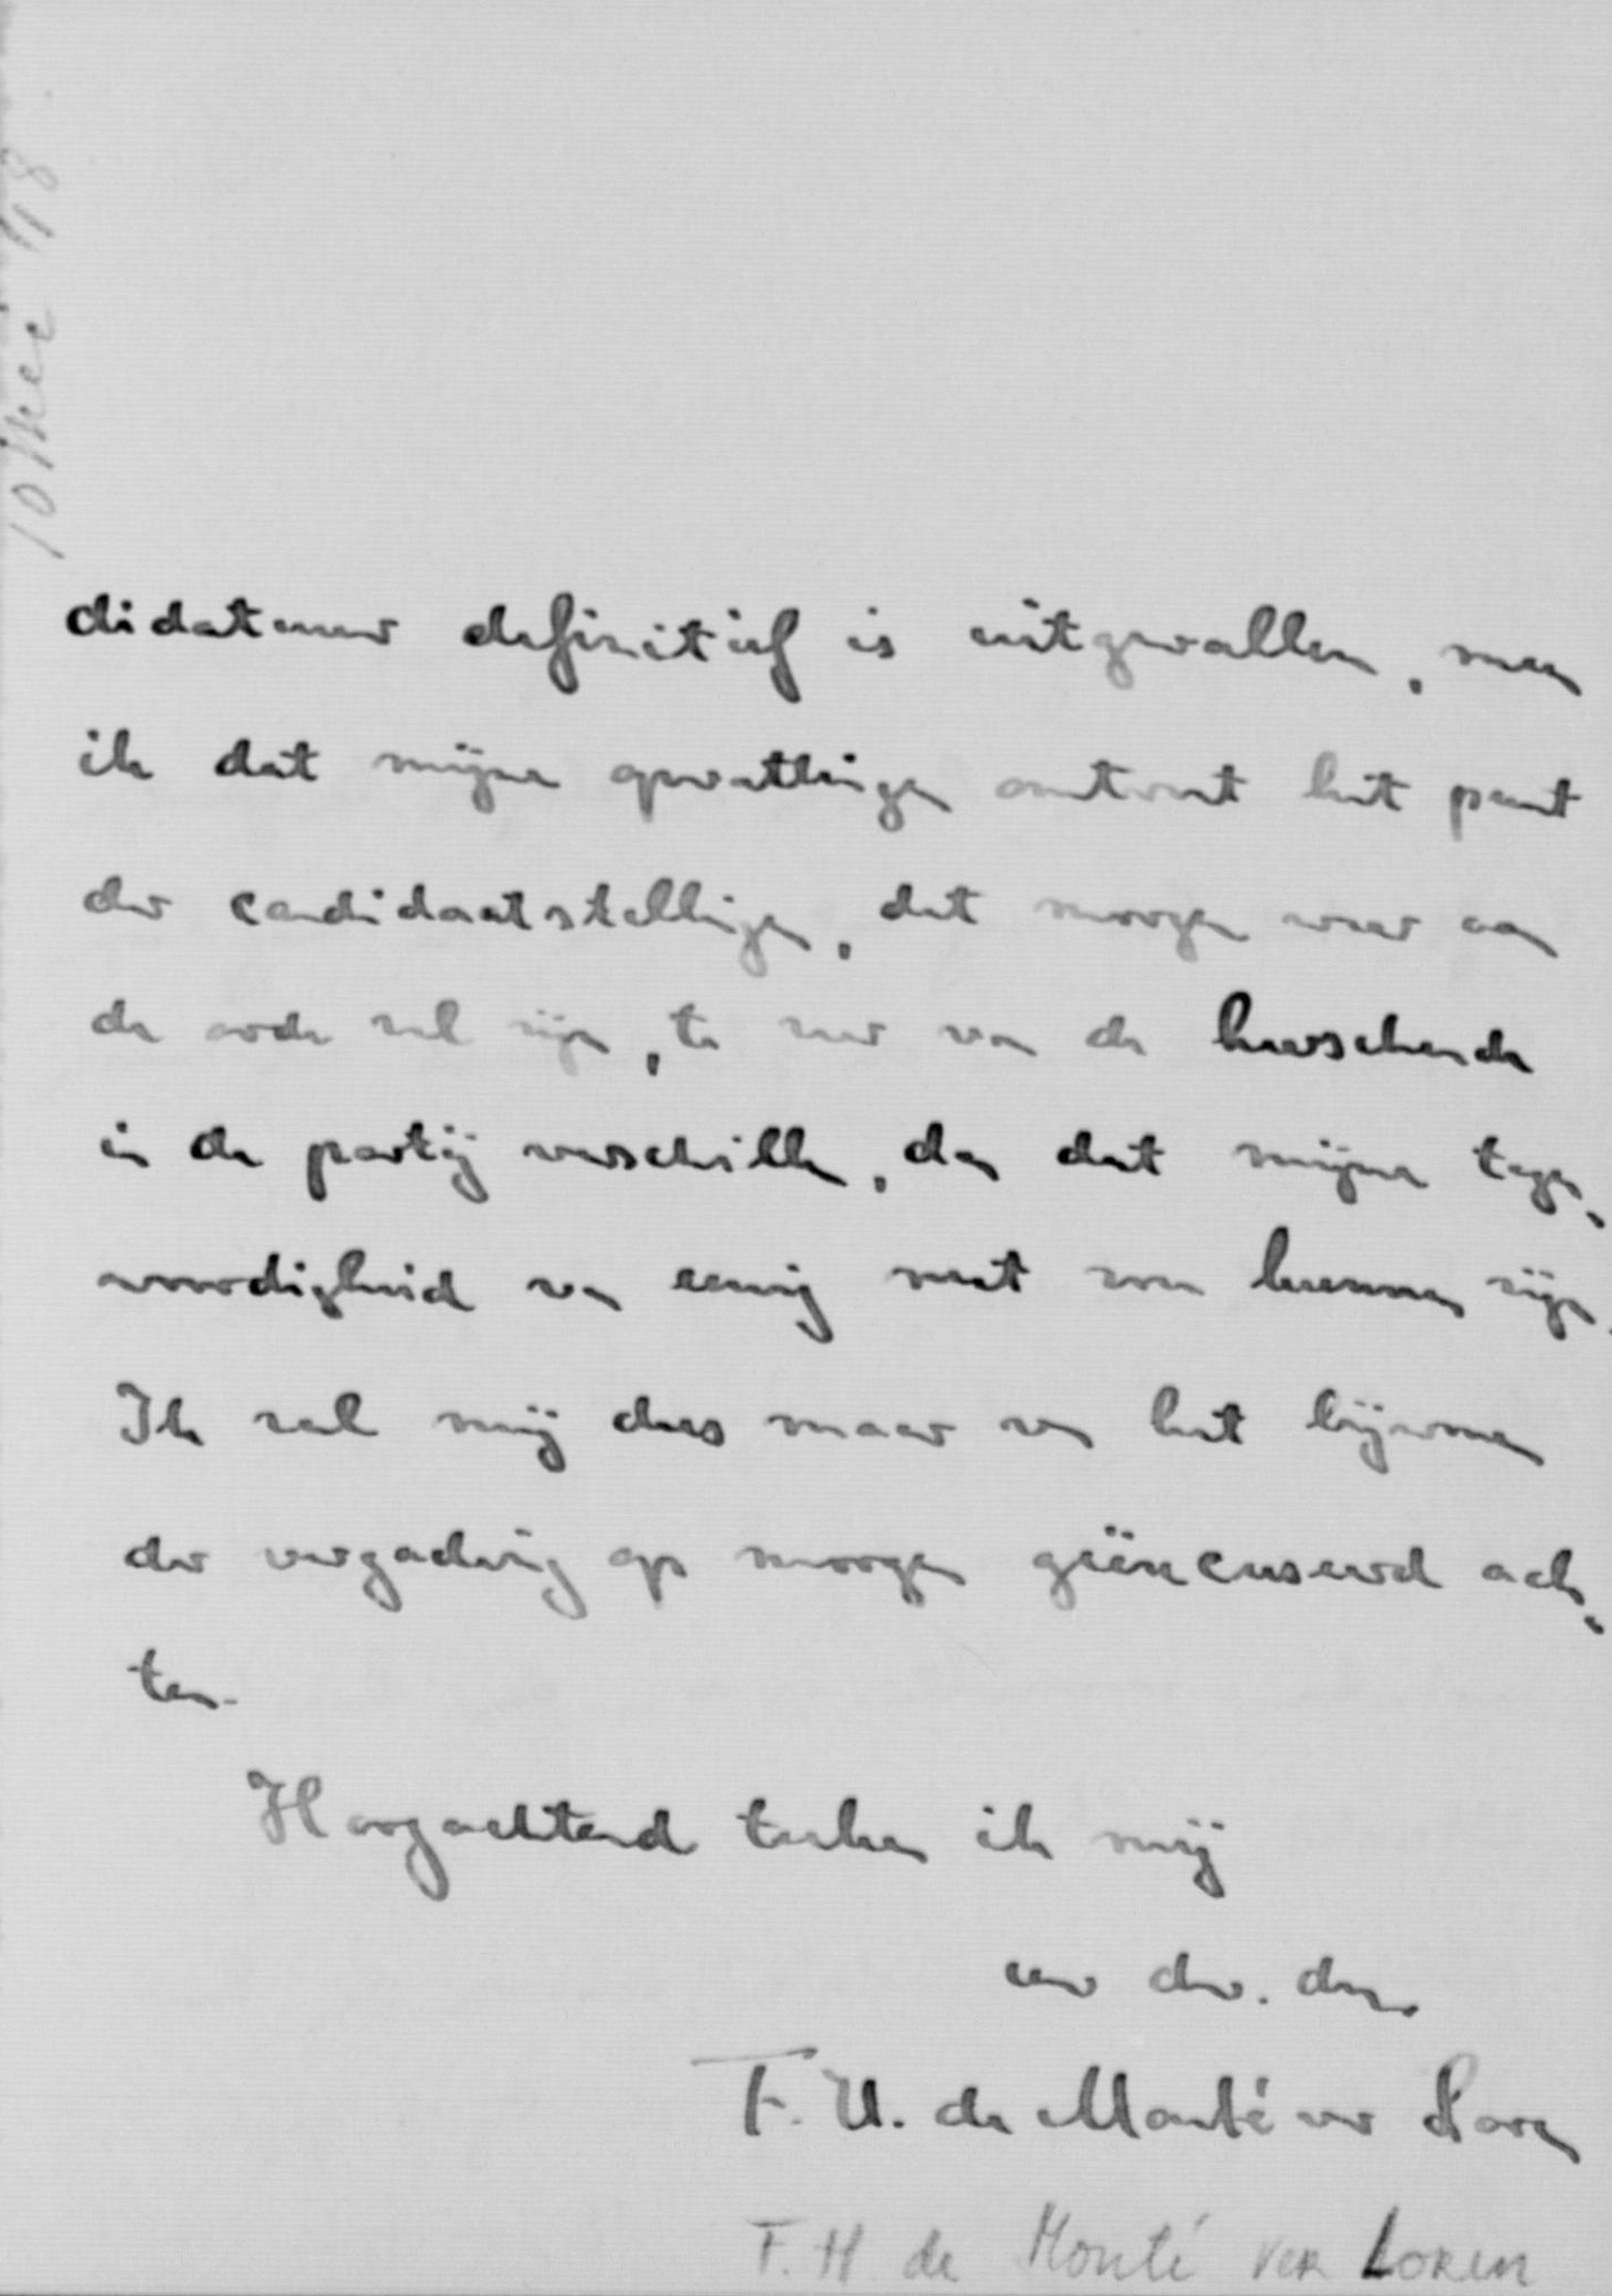 10 Mei '18
didatuur definitief is uitgevallen, meen
ik dat mijne opvattingen omtrent het punt
der candidaatstellingen, dat morgen weer aan
de orde zal zijn, te zeer van de heerschende
in de partij verschillen, dan dat mijne tegen,
woordigheid van eenig nut zou kunnen zijn.
Ik zal mij dus maar van het bijwonen
der vergadering op morgen geëxcuseerd ach,
ten.
Hoogachtend teeken ik mij
uw dw. dnr.
F. H. de Monté ver Loren
F. H de Monté ver Loren